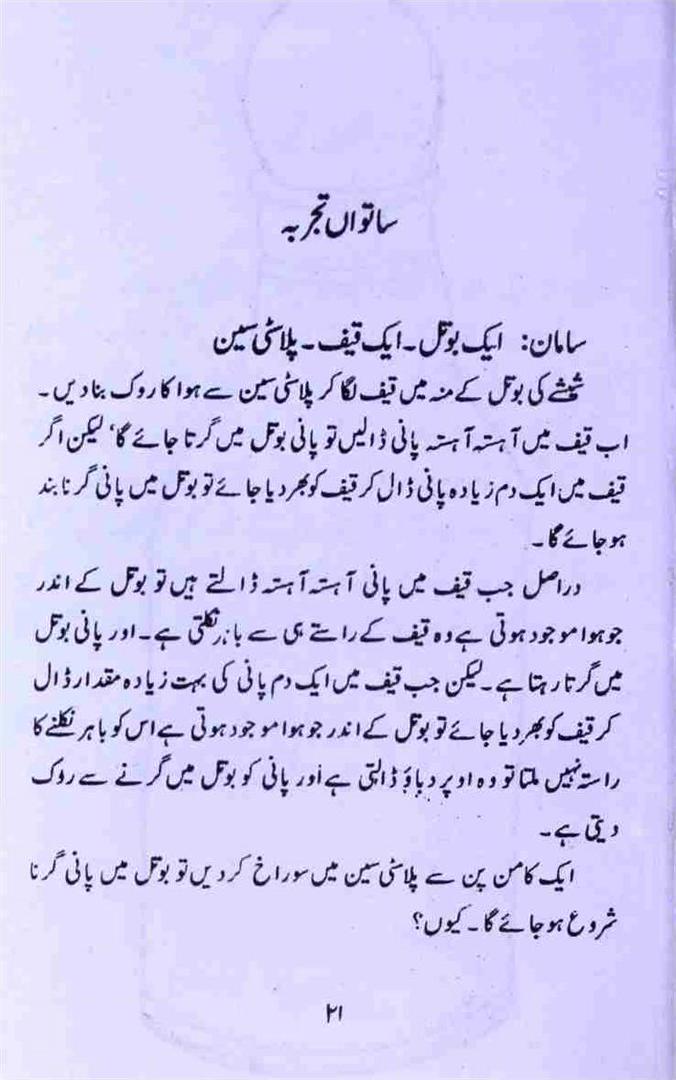 ساتواں تجربہ
سامان: ایک بوتل۔ ایک قیف۔ پلاسٹی سین
شیشے کی بوتل کے منہ میں قیف لگا کر پلاسٹی سین سے ہوا کا روک بنا دیں۔
اب قیف میں آہستہ آہستہ پانی ڈالیں تو پانی بوتل میں گرتا جائے گا، لیکن اگر
قیف میں ایک دم زیادہ پانی ڈال کر قیف کو بھر دیا جائے تو بوتل میں پانی گرنا بند
ہو جائے گا۔
دراصل جب قیف میں پانی آہستہ آہستہ ڈالتے ہیں تو بوتل کے اندر
جو ہوا موجود ہوتی ہے وہ قیف کے راستے ہی سے باہر نکلتی ہے۔ اور پانی بوتل
میں گرتا رہتا ہے۔ لیکن جب قیف میں ایک دم پانی کی بہت زیادہ مقدار ڈال
کر قیف کو بھر دیا جائے تو بوتل کے اندر جو ہوا موجود ہوتی ہے اس کو باہر نکلنے کا
راستہ نہیں ملتا تو وہ اوپر دباؤ ڈالتی ہے اور پانی کو بوتل میں گرنے سے روک
دیتی ہے۔
ایک کامن پن سے پلاسٹی سین میں سوراخ کر دیں تو بوتل میں پانی گرنا
شروع ہو جائے گا۔ کیوں؟
۲۱